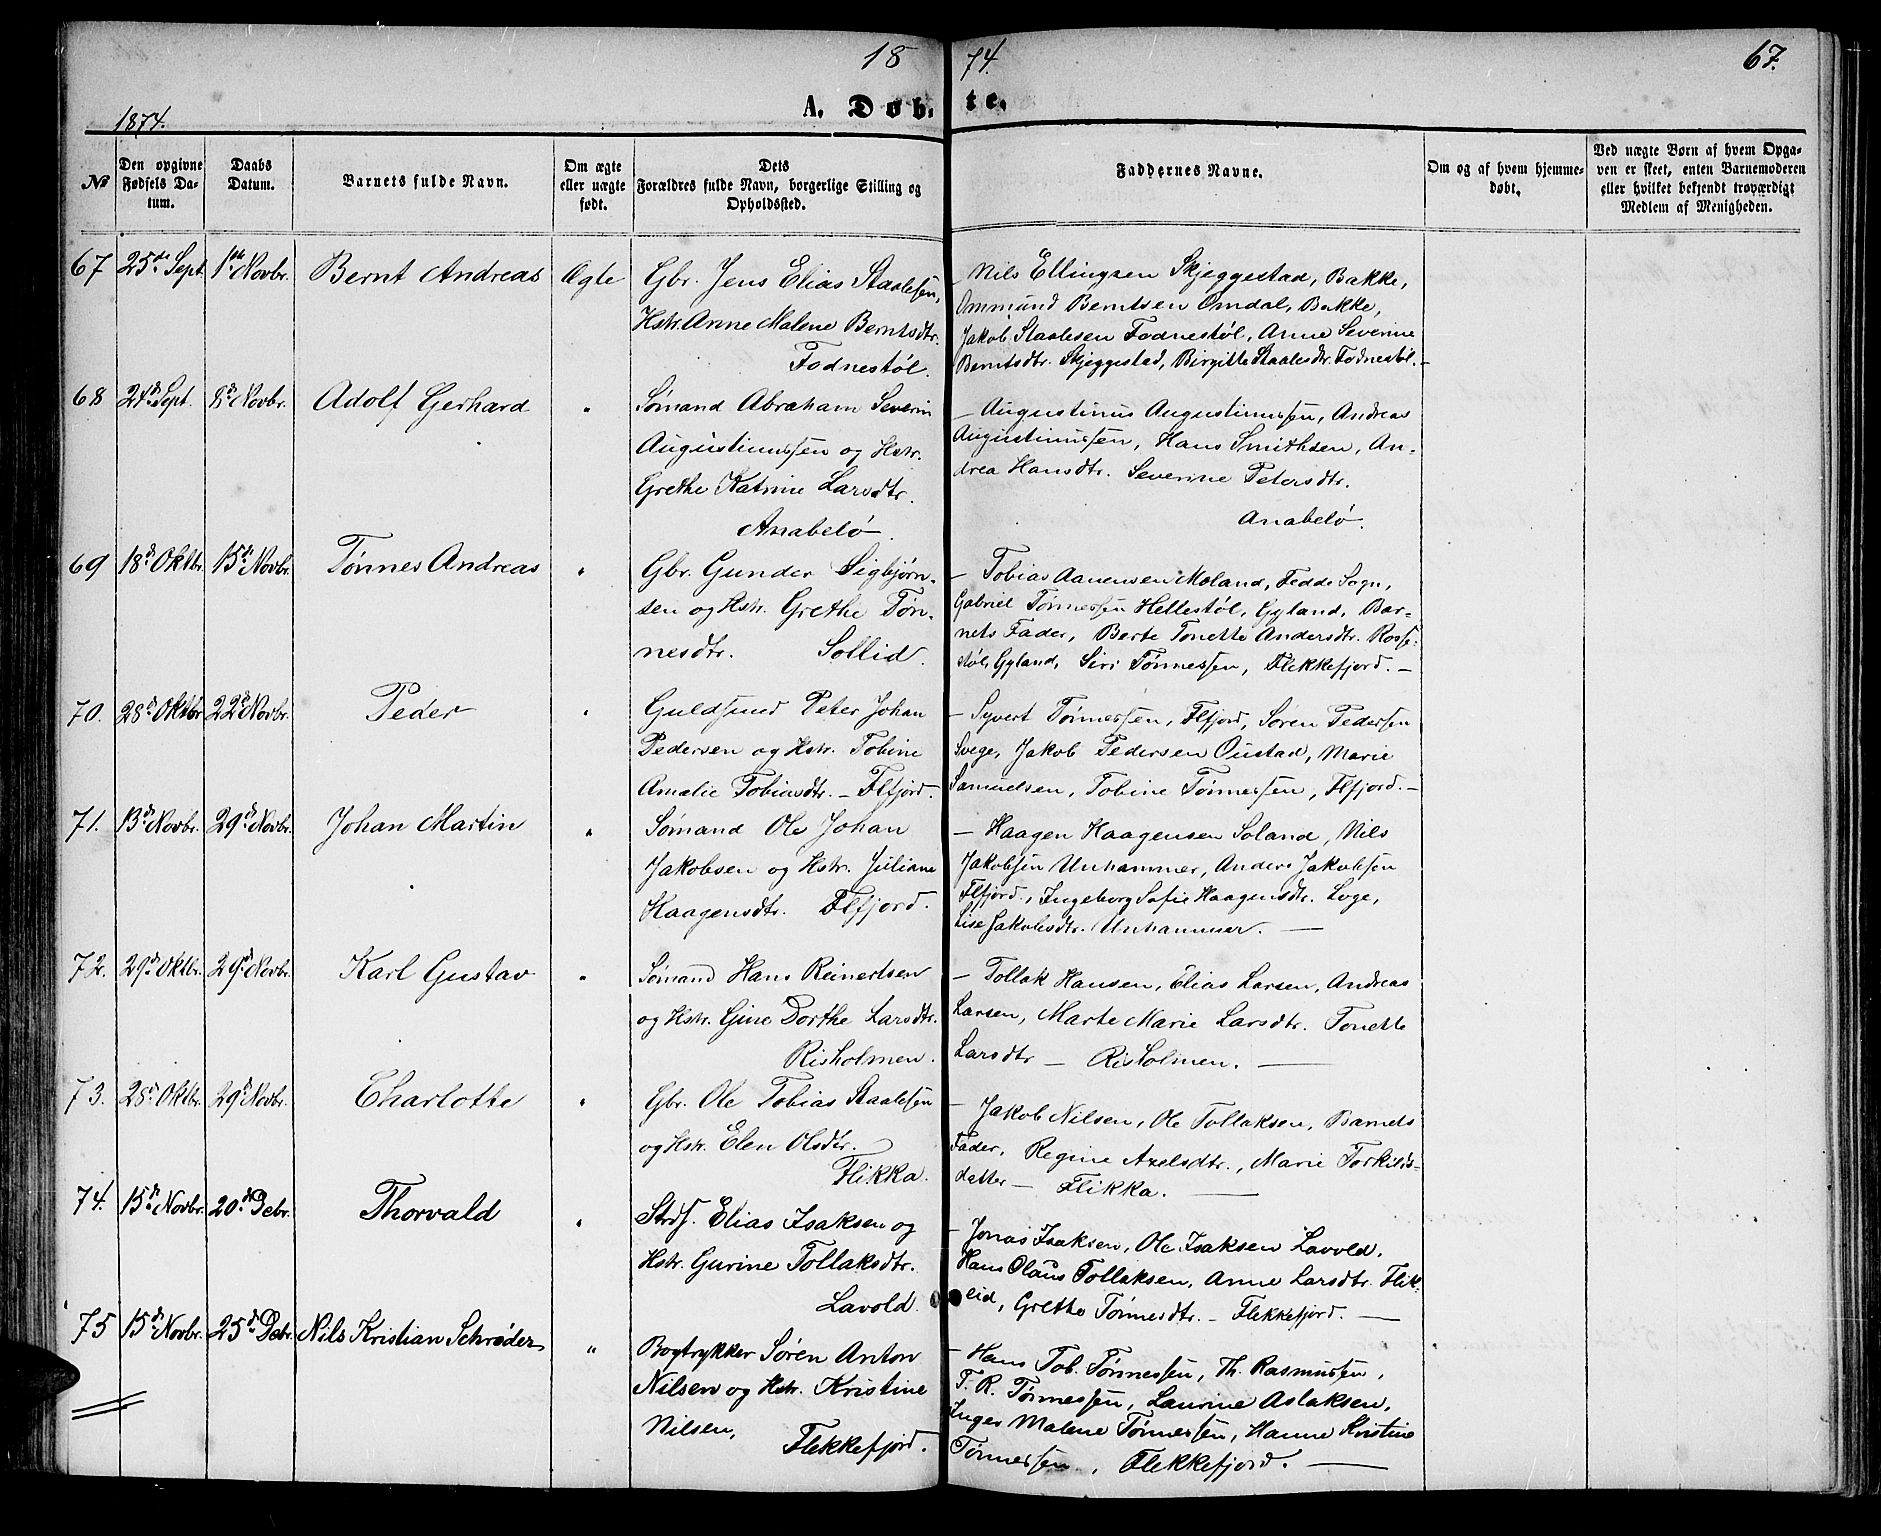 18 74. 67.
A. Døb- te.
1874.
No
Den opgivne Fødsels Da- tum.
Daabs Datum.
Barnets fulde Navn.
Om ægte eller uægte født.
Dets Forældres fulde Navn, borgerlige Stilling og Opholdssted.
Faddernes Navne.
Om og af hvem hjemme- døbt.
Ved uægte Børn af hvem Opga- ven er skeet, enten Barnemoderen eller hvilket bekjendt troværdigt Medlem af Menigheden.
67 25de Sept. 1ste Novbr. Bernt Andreas Ægte
Gbr. Jens Elias Staalesen,
Hstr. Anne Malene Berntsdtr.
Fodnestøl.
Nils Ellingsen Skjeggestad, Bakke,
Ommund Berntsen Omdal, Bakke,
Jakob Staalesen Fodnestøl, Anne Severine
Berntsdtr. Skjeggestad, Birgitte Staalesdtr. Fodnestøl. –
68 24de Sept. 8de Novbr. Adolf Gerhard "
Sømand Abraham Severin
Augustinussen og Hstr.
Grethe Katrine Larsdtr.
Anabelø.
– Augustinus Augustinussen, Andreas
Augustinussen, Hans Smithsen, An-
drea Hansdtr. Severine Petersdtr.
Anabelø.
69 18de Oktbr. 15de Novbr. Tønnes Andreas "
Gbr. Gunder Sigbjørn-
sen og Hstr. Grethe Tøn-
nesdtr. Sollid.
– Tobias Aanensen Moland, Fedde Sogn,
Gabriel Tønnessen Hellestøl, Gyland, Bar-
nets Fader, Berte Tonette Andersdtr. Rosse-
støl, Gyland, Siri Tønnessen, Flekkefjord. –
70. 28de Oktbr. 22de Novbr. Peder "
Guldsmed Peter Johan
Pedersen og Hstr. Tobine
Amalie Tobiasdtr. – Flfjord.
– Syvert Tønnessen, Flfjord, Søren Pedersen
Svege, Jakob Pedersen Oustad, Marie
Samuelsen, Tobine Tønnessen, Flfjord. –
71. 13de Novbr. 29de Novbr. Johan Martin "
Sømand Ole Johan
Jakobsen og Hstr. Juliane
Haagensdtr. Flfjord.
– Haagen Haagensen Soland, Nils
Jakobsen Unhammer, Anders Jakobsen
Flfjord., Ingeborg Sofie Haagensdtr. Loge,
Lise Jakobsdtr. Unhammer. —
72. 29de Oktbr. 29de Novbr. Karl Gustav "
Sømand Hans Reinertsen
og Hstr. Gine Dorthe Larsdtr.
Risholmen.
– Tollak Hansen, Elias Larsen, Andreas
Larsen, Marte Marie Larsdtr. Tonette
Larsdtr – Risholmen. —
73. 28de Oktbr. 29de Novbr. Charlotte "
Gbr. Ole Tobias Staalesen
og Hstr. Elen Olsdtr.
Flikka.
– Jakob Nilsen, Ole Tollaksen, Barnets
Fader, Regine Axelsdtr., Marie Torkilds-
datter – Flikka. —
74. 15de Novbr. 20de Debr. Thorvald "
Strds. Elias Isaksen og
Hstr. Gurine Tollaksdtr.
Lavold.
– Jonas Isaksen, Ole Isaksen Lavold,
Hans Olaus Tollaksen, Anne Larsdtr. Flik-
eid, Grethe Tønnesdtr. – Flekkefjord. —
75 15de Novbr. 25de Debr. Nils Kristian Schrøder "
Bogtrykker Søren Anton
Nilsen og Hstr. Kristine
Nilsen,
Flekkefjord.
– Hans Tob. Tønnessen, Th. Rasmussen,
T. R. Tønnessen, Laurine Aslaksen,
Inger Malene Tønnessen, Hanne Kristine
Tønnessen, Flekkefjord. —